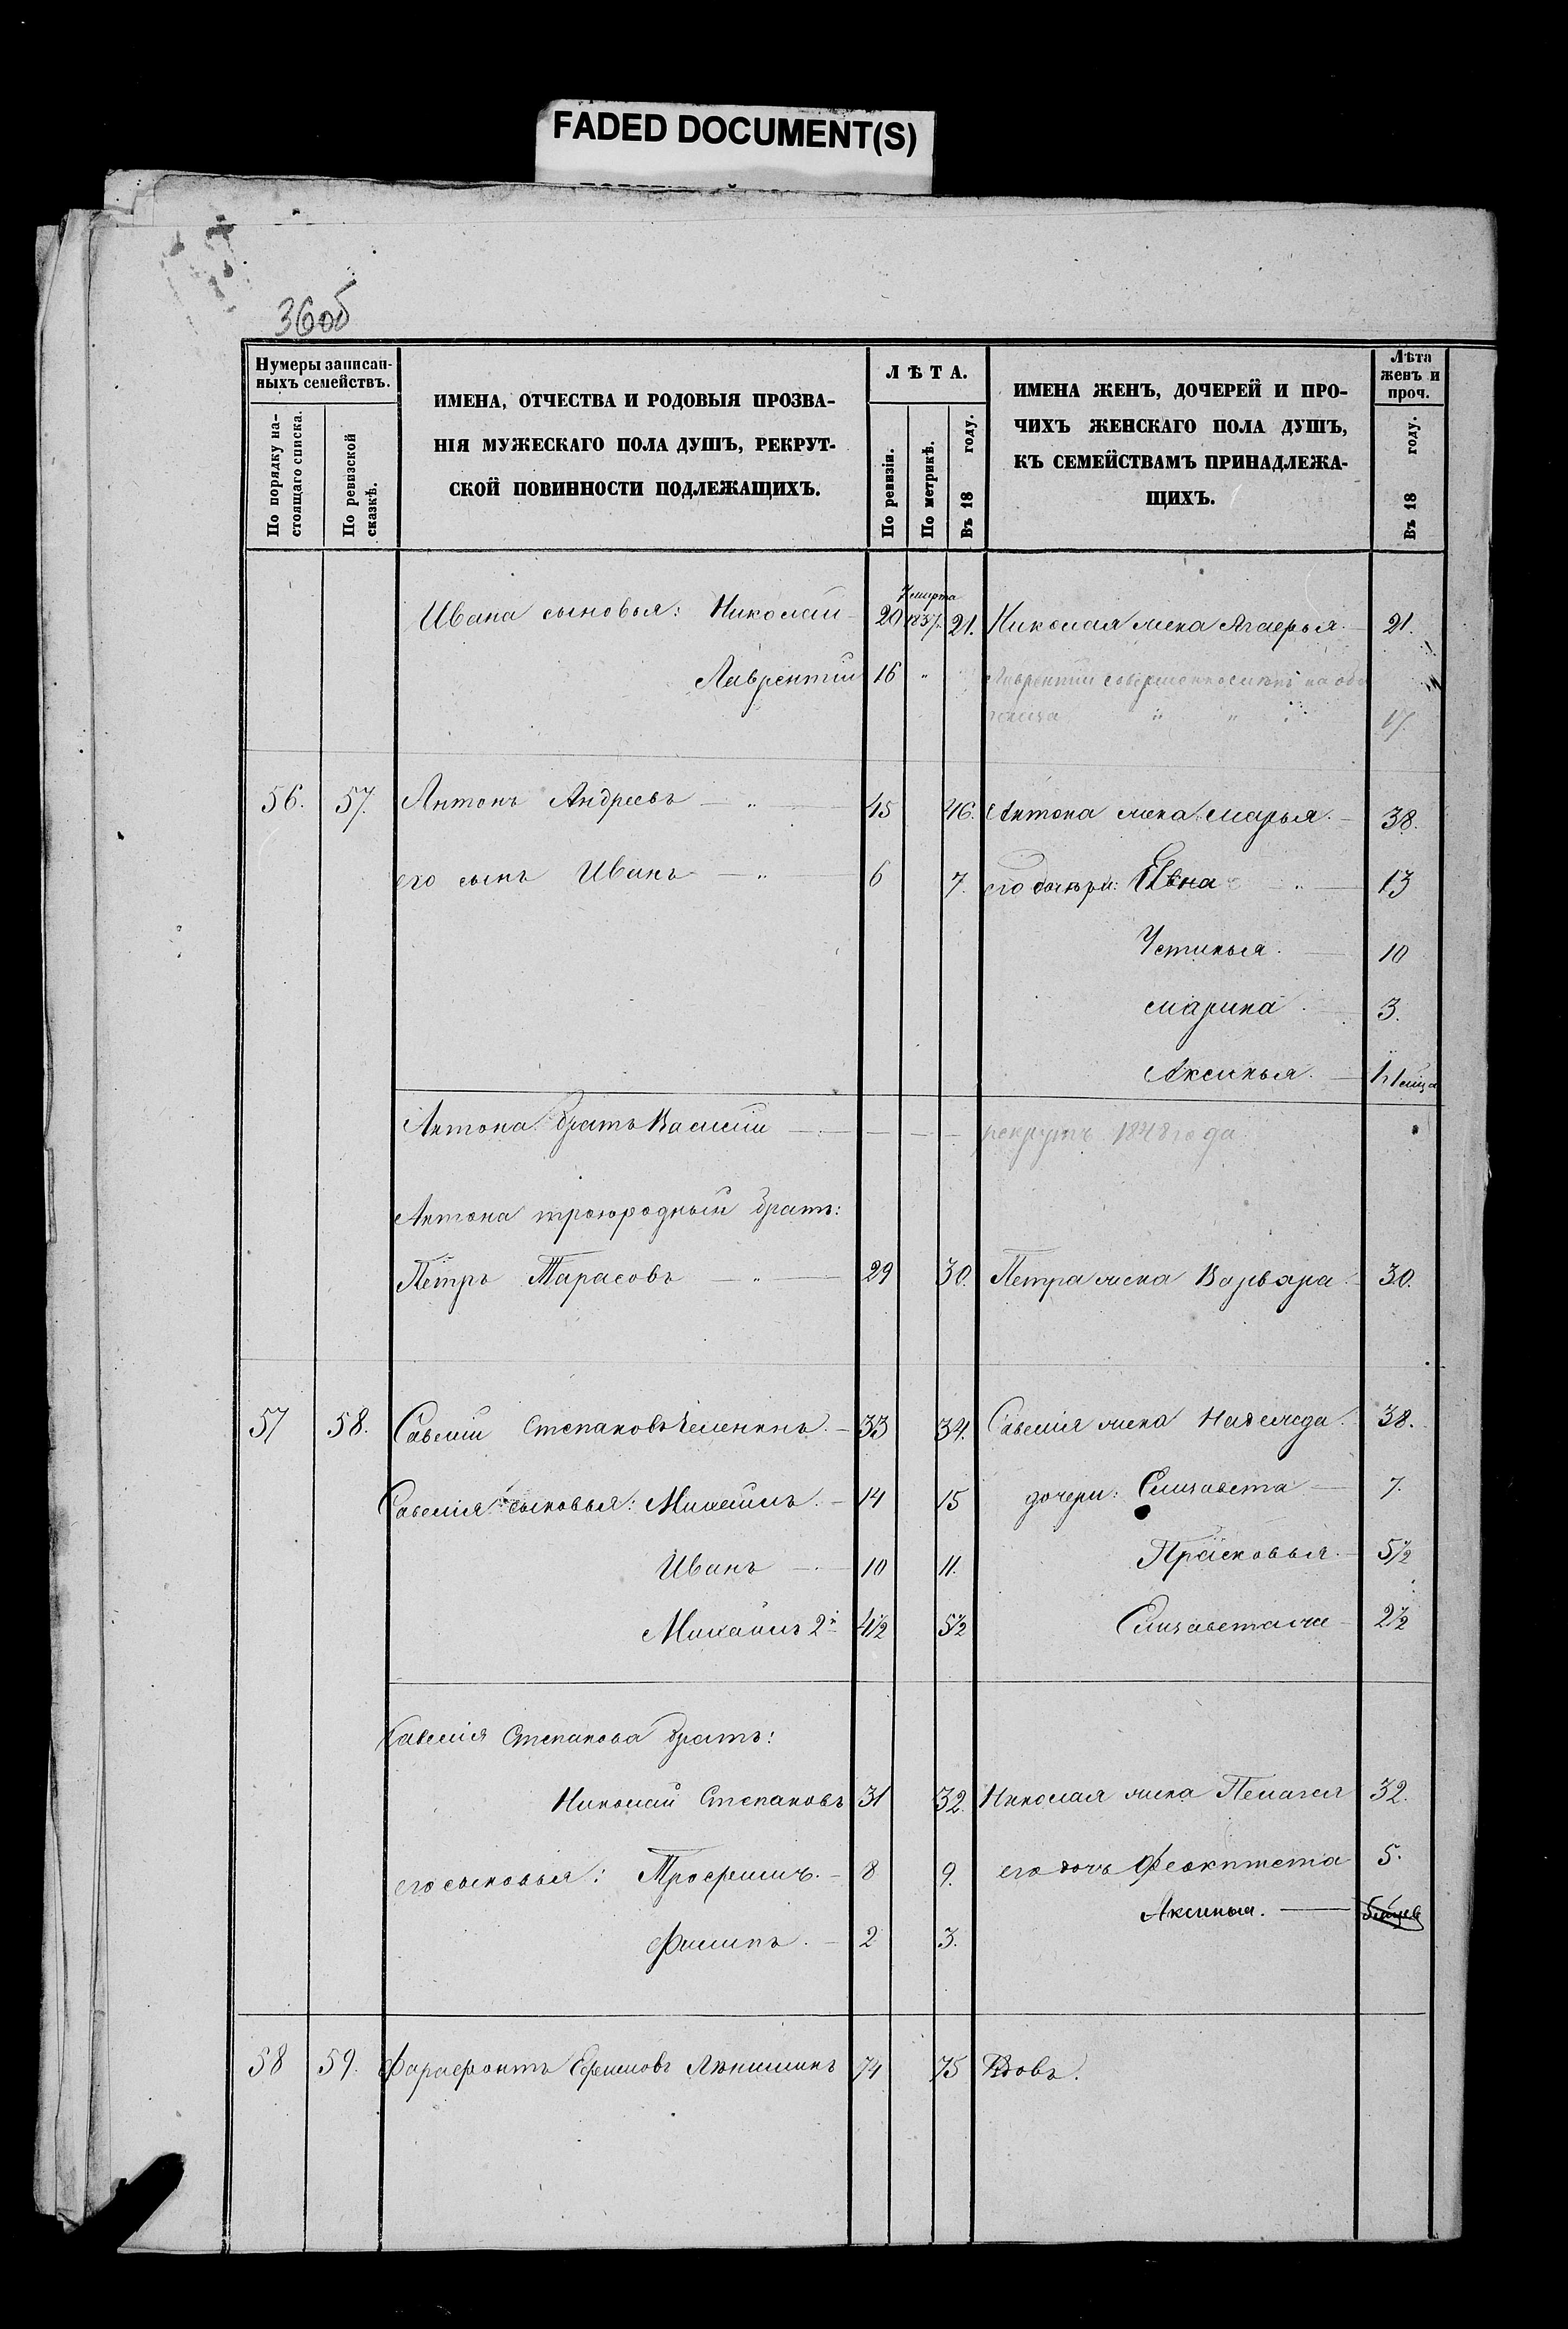 FADED DOCUMENT(S)
36об
Нумеры записан-
ныхъ семействъ.
По порядку на-
стоящаго списка.
По ревизской
сказкѣ.
ИМЕНА, ОТЧЕСТВА И РОДОВЫЯ ПРОЗВА-
НІЯ МУЖЕСКАГО ПОЛА ДУШЪ, РЕКРУТ-
СКОЙ ПОВИННОСТИ ПОДЛЕЖАЩИХЪ.
ЛѢТА.
По ревизіи.
По метрикѣ.
Въ 18 году.
ИМЕНА ЖЕНЪ, ДОЧЕРЕЙ И ПРО-
ЧИХЪ ЖЕНСКАГО ПОЛА ДУШЪ,
КЪ СЕМЕЙСТВАМЪ ПРИНАДЛЕЖА-
ЩИХЪ.
Лѣта
женъ и
проч.
Въ 18 году.
7 марта
Ивана сыновья: Николай 20 1837. 21. Николая жена Агаѳья 21.
Лаврентій 16 "
17.
56. 57. Антонъ Андреевъ — " — 45 46. Антона жена Марья. 38.
его сынъ Иванъ — " — 6 7. его дочери: " — 13
Устинья. 10
Марина. 3.
Аксинья.
Антона братъ Василій — рекрутъ 1848 года
Антона троюродный братъ:
Петръ Тарасовъ — " — 29 30. Петра жена Варвара. 30.
57 58. Савелій Степановъ 33 34. Савелія жена Надежда. 38.
Савелія сыновья: Михаилъ. 14 15 дочери: Елизавета — 7.
Иванъ — 10 11. Прасковья. 5½
Михаилъ 2й 4½ 5½ Елизавета 2½
Савелія Степанова братъ:
Николай Степановъ 31 32. Николая жена Пелагея 32.
его сыновья: Трофимъ. 8 9. его дочь 5.
Аксинья. —
Филипъ. 2 3.
58 59. Фарафонтъ Ефимовъ 74 75 Вдовъ.